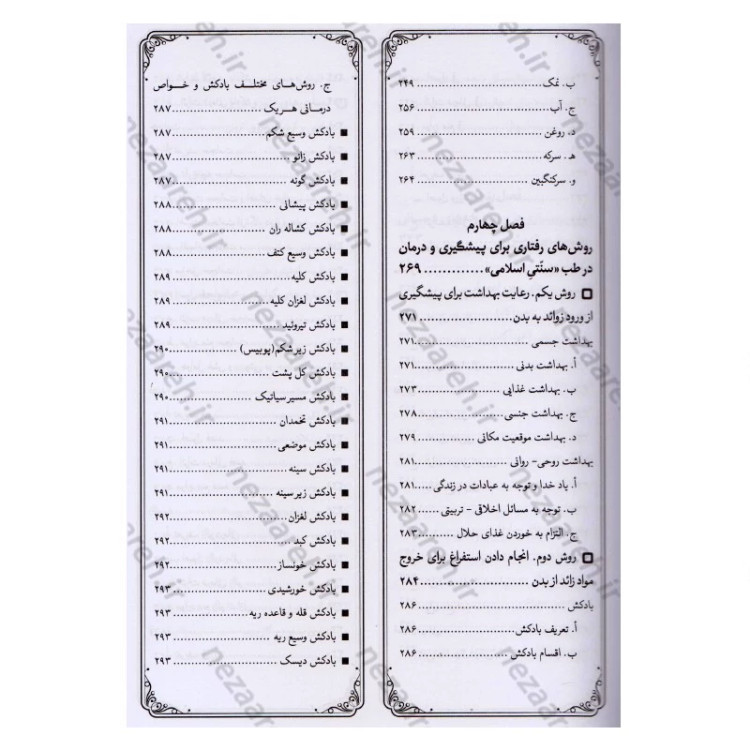 ب. نمک ........ ۲۴۹
ج. آب ........ ۲۵۶
د. روغن ........ ۲۵۹
هـ. سرکه ........ ۲۶۳
و. سرکنگبین ........ ۲۶۴
فصل چهارم
روش‌های رفتاری برای پیشگیری و درمان
در طب «سنّتیِ اسلامی» ........ ۲۶۹
روش یکم. رعایت بهداشت برای پیشگیری
از ورود زوائد به بدن ........ ۲۷۱
بهداشت جسمی ........ ۲۷۱
أ. بهداشت بدنی ........ ۲۷۱
ب. بهداشت غذایی ........ ۲۷۳
ج. بهداشت جنسی ........ ۲۷۸
د. بهداشت موقعیت مکانی ........ ۲۷۹
بهداشت روحی- روانی ........ ۲۸۱
أ. یاد خدا و توجه به عبادات در زندگی ........ ۲۸۱
ب. توجه به مسائل اخلاقی - تربیتی ........ ۲۸۲
ج. التزام به خوردن غذای حلال ........ ۲۸۳
روش دوم. انجام دادن استفراغ برای خروج
مواد زائد از بدن ........ ۲۸۴
بادکش ........ ۲۸۶
أ. تعریف بادکش ........ ۲۸۶
ب. اقسام بادکش ........ ۲۸۶
ج. روش‌های مختلف بادکش و خواص
درمانی هر یک ........ ۲۸۷
■ بادکش وسیع شکم ........ ۲۸۷
■ بادکش زانو ........ ۲۸۷
■ بادکش گونه ........ ۲۸۷
■ بادکش پیشانی ........ ۲۸۸
■ بادکش کشاله ران ........ ۲۸۸
■ بادکش وسیع کتف ........ ۲۸۸
■ بادکش کلیه ........ ۲۸۹
■ بادکش لغزان کلیه ........ ۲۸۹
■ بادکش تیروئید ........ ۲۸۹
■ بادکش زیر شکم(پوبیس) ........ ۲۹۰
■ بادکش کل پشت ........ ۲۹۰
■ بادکش مسیر سیاتیک ........ ۲۹۰
■ بادکش تخمدان ........ ۲۹۱
■ بادکش موضعی ........ ۲۹۱
■ بادکش سینه ........ ۲۹۱
■ بادکش زیر سینه ........ ۲۹۱
■ بادکش لغزان ........ ۲۹۲
■ بادکش کبد ........ ۲۹۲
■ بادکش خونساز ........ ۲۹۲
■ بادکش خورشیدی ........ ۲۹۳
■ بادکش قله و قاعده ریه ........ ۲۹۳
■ بادکش وسیع ریه ........ ۲۹۳
■ بادکش دیسک ........ ۲۹۳
nezaareh.ir